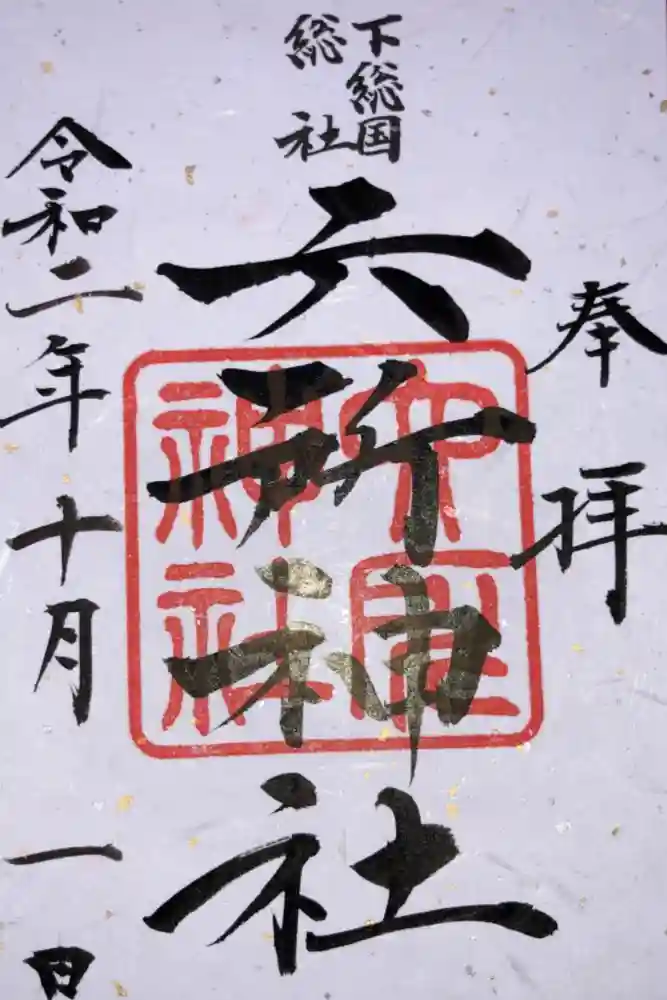 奉拝
下総国
総社
六所神社
六所神社
令和二年十月一日